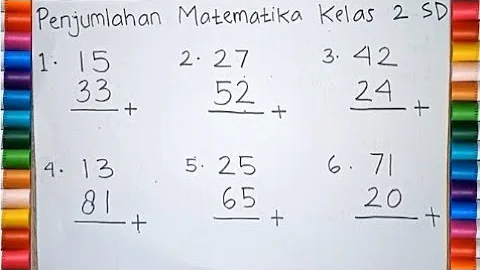 Penjumlahan Matematika Kelas 2 SD
1. 15 2. 27 3. 42
33 + 52 + 24 +
4. 13 5. 25 6. 71
81 + 65 + 20 +